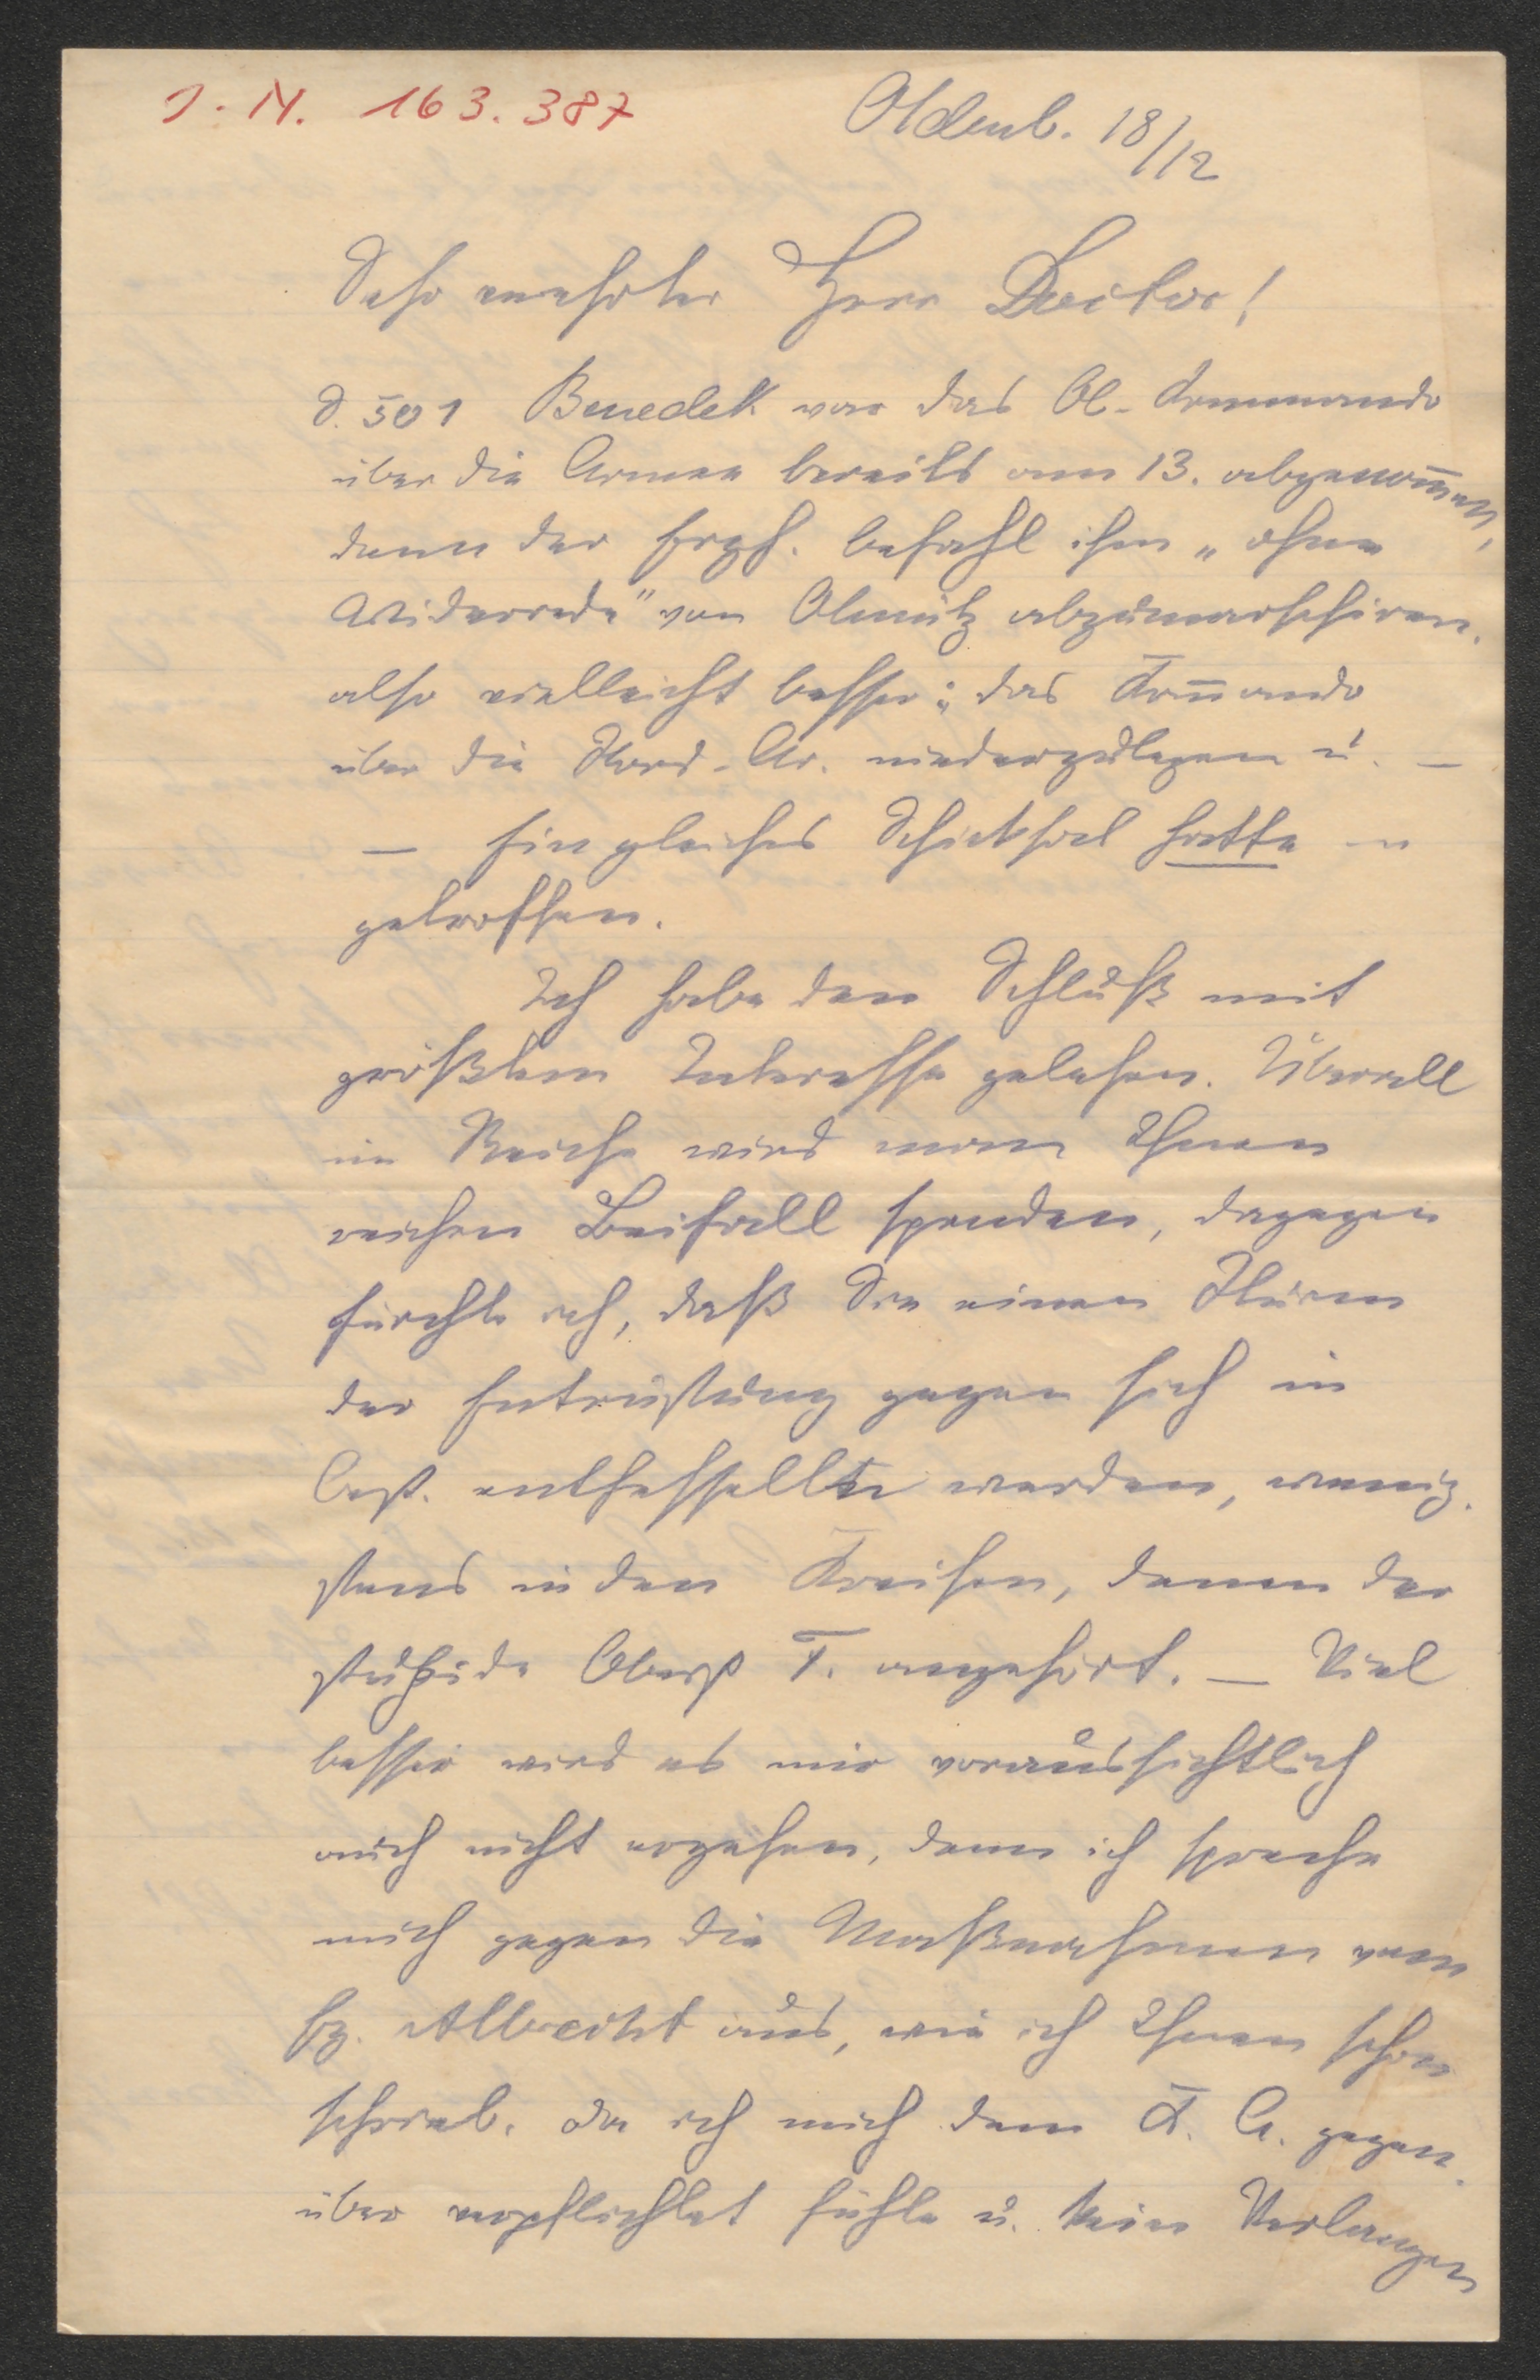 I. N. 163.387
Oldenb. 18/12
Sehr verehrter Herr Doctor!
S. 501 Benedek war das Ob-Kommando
über die Armee bereits am 13. abgenom̄en,
denn der Erzh. befahl ihm „ohne
Widerrede" von Olmütz abzumarschiren.
also vielleicht besser: das Kom̄ando
über die Nord-Ar. niederzulegen u. —
— Ein gleiches Schicksal hatte
getroffen.
Ich habe den Schluß mit
größtem Interesse gelesen. Überall
im Reiche wird man Ihnen
reichen Beifall spenden, dagegen
fürchte ich, daß Sie einen Sturm
der Entrüstung gegen sich in
Oest. entfesseln werden, wenig-
stens in den Kreisen, denen der
stupide Oberst T. angehört. — Viel
besser wird es mir voraussichtlich
auch nicht ergehen, denn ich spreche
mich gegen die Maßnahmen vom
Ez. Albrecht aus, wie ich Ihnen schon
schrieb. Da ich mich dem K. A. gegen-
über verpflichtet fühle u. kein Verlangen